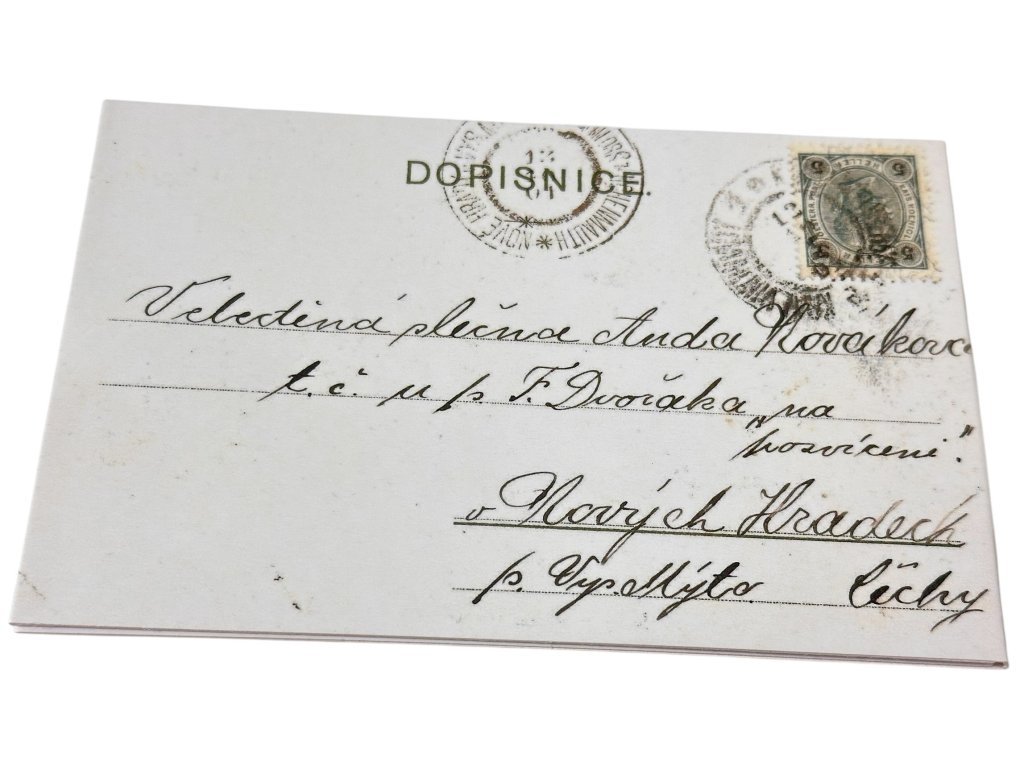 DOPISNICE.
NOVÉ HRADY
13
01
5 5
5 5
Velectěná slečna Anda Novákova
t. č. u p. F. Dvořáka „na
posvícení".
v Nových Hradech
p. Vys. Mýto Čechy